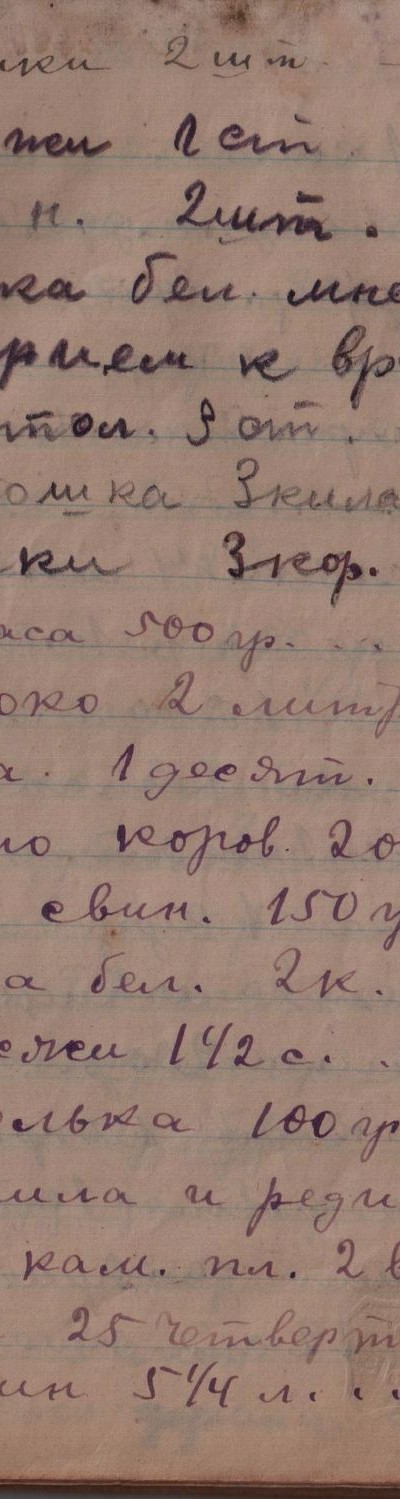 ики 2 шт.
жи 1 ст
н. 2 шт.
ка бел. мне
рием к вр
тол. 3 ст.
ошка 3 кила
ки 3 кор.
яса 500 гр. . .
око 2 литр
а. 1 десят.
ло коров. 20
свин. 150 г
а бел. 2 к.
ежи 1 1/2 с. .
олька 100 гр
ила и реди
кам. пл. 2 в
25 четверт
ин 5 1/4 л. . .